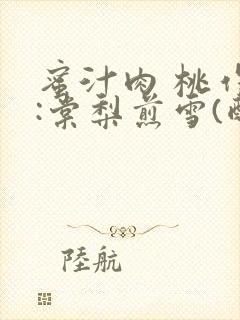 蜜汁肉桃
:棠梨煎雪(
陸航